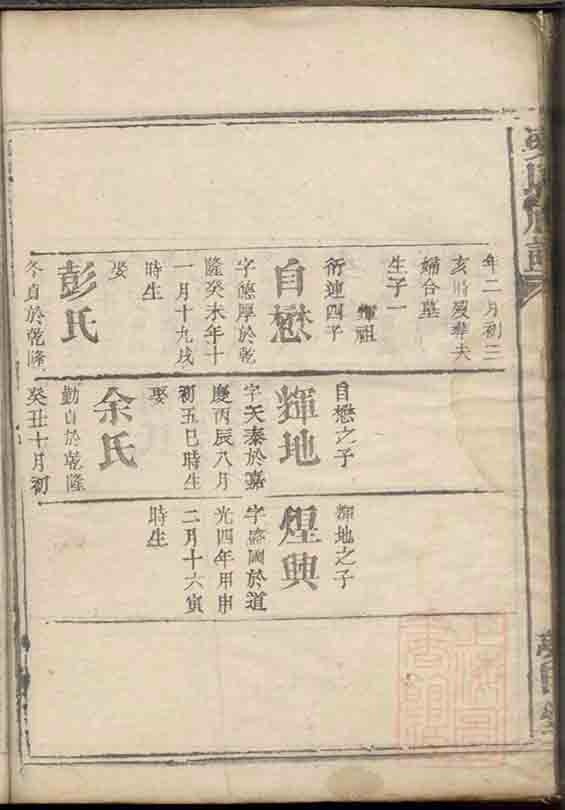 年二月初三
亥時歿葬夫
婦合墓
生子一
輝祖
衍連四子
自懋
字德厚於乾
隆癸未年十
一月十九戌
時生
娶
彭氏
冬貞於乾隆
自懋之子
輝地
字天泰於嘉
慶丙辰八月
初五巳時生
娶
余氏
勤貞於乾隆
癸丑十月初
輝地之子
煋興
字 國於道
光四年甲申
二月十六寅
時生